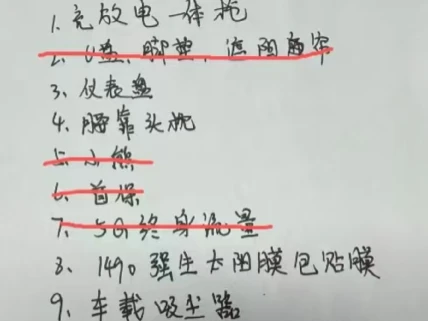 1. 充放电一体枪
2. U盘、脚垫、遮阳
3、仪表盘
4、腰靠头枕
5、小熊
6、首保
7、5G终身流量
8、1490 强生太阳膜包贴膜
9、车载吸尘器